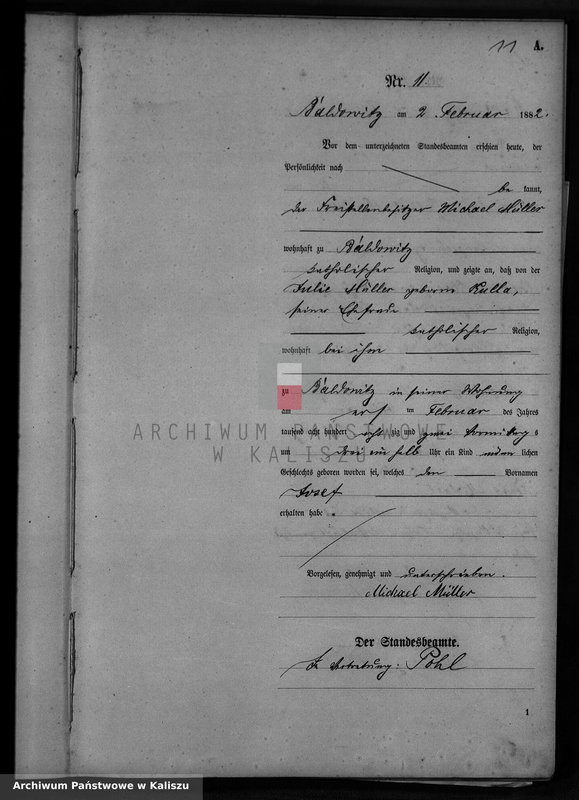 11 A.
Nr. 11
Baldowitz am 2. Februar 1882.
Vor dem unterzeichneten Standesbeamten erschien heute, der
Persönlichkeit nach
be kannt,
der Freistellenbesitzer Michael Müller
wohnhaft zu Baldowitz
katholischer Religion, und zeigte an, daß von der
Julie Müller geborene Kulla,
seiner Ehefrau
katholischer Religion,
wohnhaft bei ihm
zu Baldowitz in seiner Wohnung
am ersten Februar des Jahres
tausend acht hundert achtzig und zwei Vormittags
um drei ein halb Uhr ein Kind männlichen
Geschlechts geboren worden sei, welches den Vornamen
Josef
erhalten habe.
Vorgelesen, genehmigt und unterschrieben.
Michael Müller
Der Standesbeamte.
In Vertretung: Pohl
1
ARCHIWUM PAŃSTWOWE
W KALISZU
Archiwum Państwowe w Kaliszu